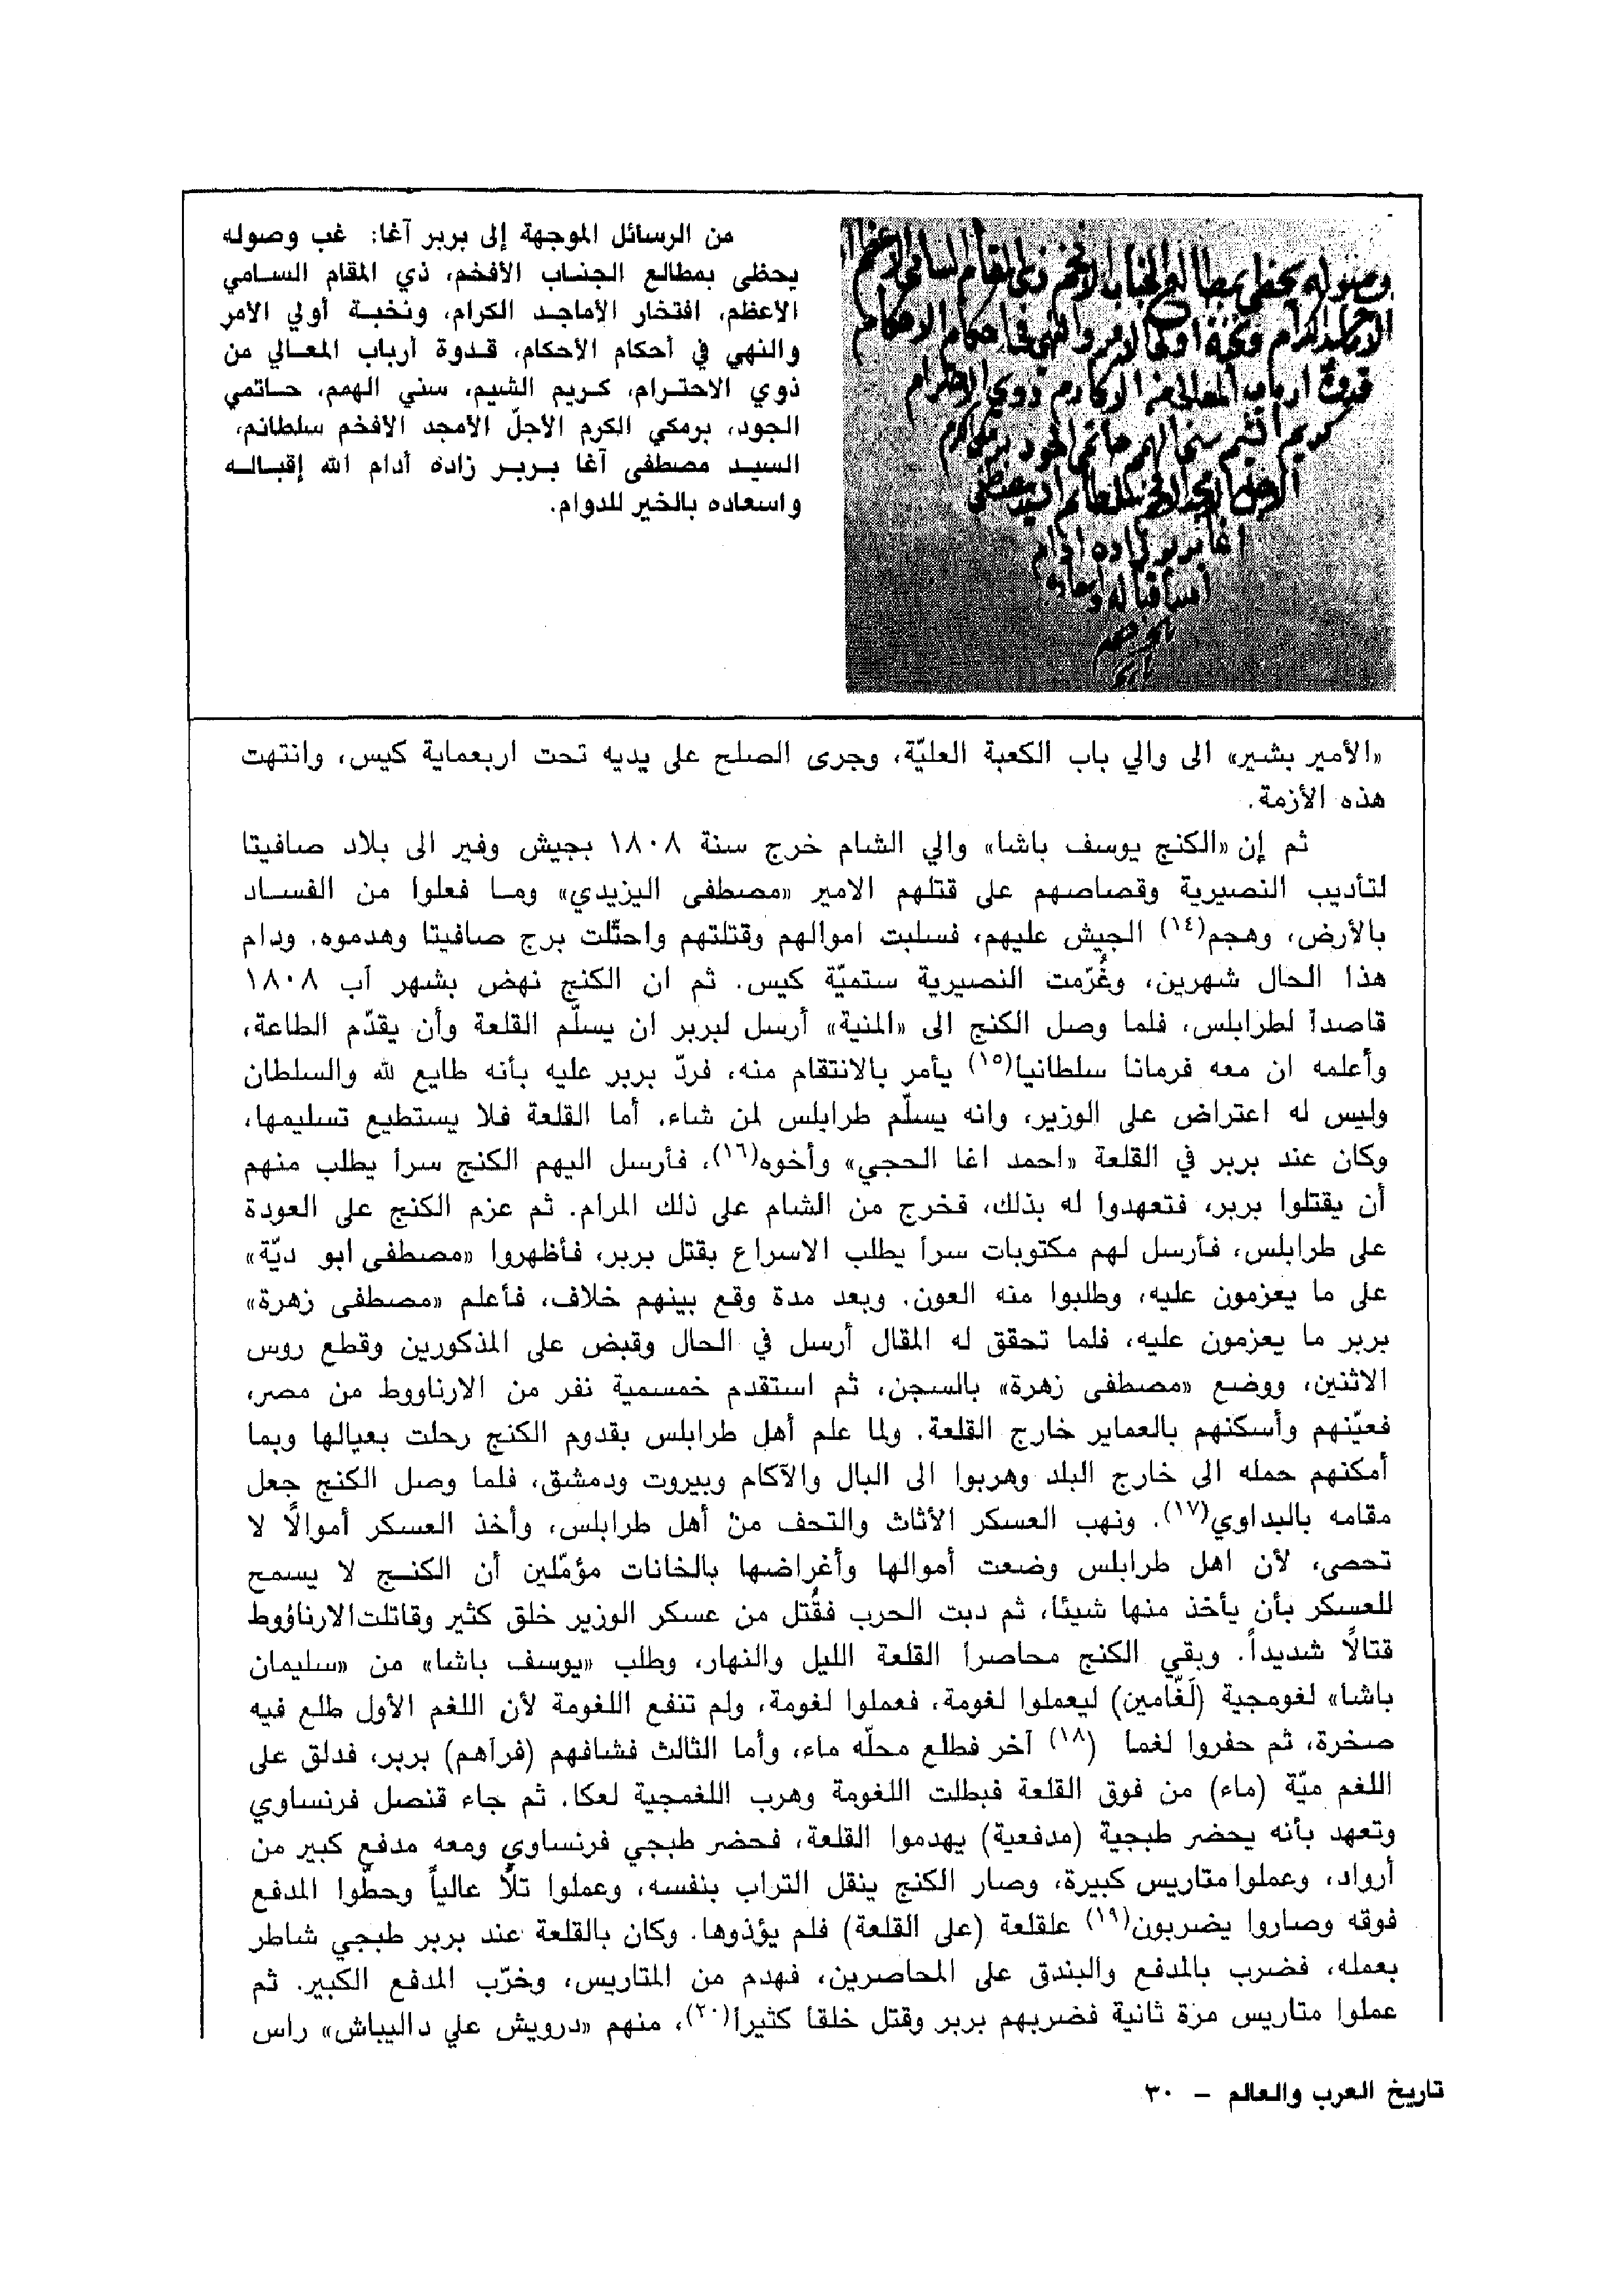 من الرسائل الموجهة إلى بربر آغا: غب وصوله
يحظى بمطالع الجناب الأفخم، ذي المقام السامي
الاعظم، افتخار الأماجد الكرام، ونخبة أولي الأمر
والنهي في أحكام الأحكام، قدوة أرباب المعالي من
ذوي الاحترام، كريم الشيم، سني الهمم، حاتمي
الجود، برمكي الكرم الأجلّ الأمجد الافخم سلطانم،
السيد مصطفى آغا بربر زاده أدام الله إقباله
واسعاده بالخير للدوام.
«الأمير بشير» الى والي باب الكعبة العليّة، وجرى الصلح على يديه تحت اربعماية كيس، وانتهت
هذه الأزمة.
ثم إن «الكنج يوسف باشا» والي الشام خرج سنة ١٨٠٨ بجيش وفير الى بلاد صافيتا
لتأديب النصيرية وقصاصهم على قتلهم الامير «مصطفى اليزيدي» وما فعلوا من الفساد
بالأرض، وهجم(١٤) الجيش عليهم، فسلبت اموالهم وقتلتهم واحتّلت برج صافيتا وهدموه. ودام
هذا الحال شهرين، وغُرّمت النصيرية ستميّة كيس. ثم ان الكنج نهض بشهر آب ١٨٠٨
قاصداً لطرابلس، فلما وصل الكنج الى «المنية» أرسل لبربر ان يسلّم القلعة وأن يقدّم الطاعة،
وأعلمه ان معه فرمانا سلطانيا(١٥) يأمر بالانتقام منه، فردّ بربر عليه بأنه طايع لله والسلطان
وليس له اعتراض على الوزير، وانه يسلّم طرابلس لمن شاء. أما القلعة فلا يستطيع تسليمها،
وكان عند بربر في القلعة «احمد اغا الحجي» وأخوه(١٦)، فأرسل اليهم الكنج سراً يطلب منهم
أن يقتلوا بربر، فتعهدوا له بذلك، فخرج من الشام على ذلك المرام. ثم عزم الكنج على العودة
على طرابلس، فأرسل لهم مكتوبات سراً يطلب الاسراع بقتل بربر، فأظهروا «مصطفى ابو ديّة»
على ما يعزمون عليه، وطلبوا منه العون. وبعد مدة وقع بينهم خلاف، فأعلم «مصطفى زهرة»
بربر ما يعزمون عليه، فلما تحقق له المقال أرسل في الحال وقبض على المذكورين وقطع روس
الاثنين، ووضع «مصطفى زهرة» بالسجن، ثم استقدم خمسمية نفر من الارناووط من مصر،
فعيّنهم وأسكنهم بالعماير خارج القلعة. ولما علم أهل طرابلس بقدوم الكنج رحلت بعيالها وبما
أمكنهم حمله الى خارج البلد وهربوا الى البال والآكام وبيروت ودمشق، فلما وصل الكنج جعل
مقامه بالبداوي(١٧). ونهب العسكر الأثاث والتحف من أهل طرابلس، وأخذ العسكر أموالًا لا
تحصى، لأن اهل طرابلس وضعت أموالها وأغراضها بالخانات مؤمّلين أن الكنج لا يسمح
للعسكر بأن يأخذ منها شيئا، ثم دبت الحرب فقُتل من عسكر الوزير خلق كثير وقاتلت الارناؤوط
قتالًا شديداً. وبقي الكنج محاصراً القلعة الليل والنهار، وطلب «يوسف باشا» من «سليمان
باشا» لغومجية (لَغّامين) ليعملوا لغومة، فعملوا لغومة، ولم تنفع اللغومة لأن اللغم الأول طلع فيه
صخرة، ثم حفروا لغما (١٨) آخر فطلع محلّه ماء، وأما الثالث فشافهم (فرآهم) بربر، فدلق على
اللغم ميّة (ماء) من فوق القلعة فبطلت اللغومة وهرب اللغمجية لعكا. ثم جاء قنصل فرنساوي
وتعهد بأنه يحضر طبجية (مدفعية) يهدموا القلعة، فحضر طبجي فرنساوي ومعه مدفع كبير من
أرواد، وعملوا متاريس كبيرة، وصار الكنج ينقل التراب بنفسه، وعملوا تلًّا عالياً وحطّوا المدفع
فوقه وصاروا يضربون(١٩) علقلعة (على القلعة) فلم يؤذوها. وكان بالقلعة عند بربر طبجي شاطر
بعمله، فضرب بالمدفع والبندق على المحاصرين، فهدم من المتاريس، وخرّب المدفع الكبير. ثم
عملوا متاريس مرة ثانية فضربهم بربر وقتل خلقا كثيراً(٢٠)، منهم «درويش علي داليباش» راس
تاريخ العرب والعالم - ٣٠